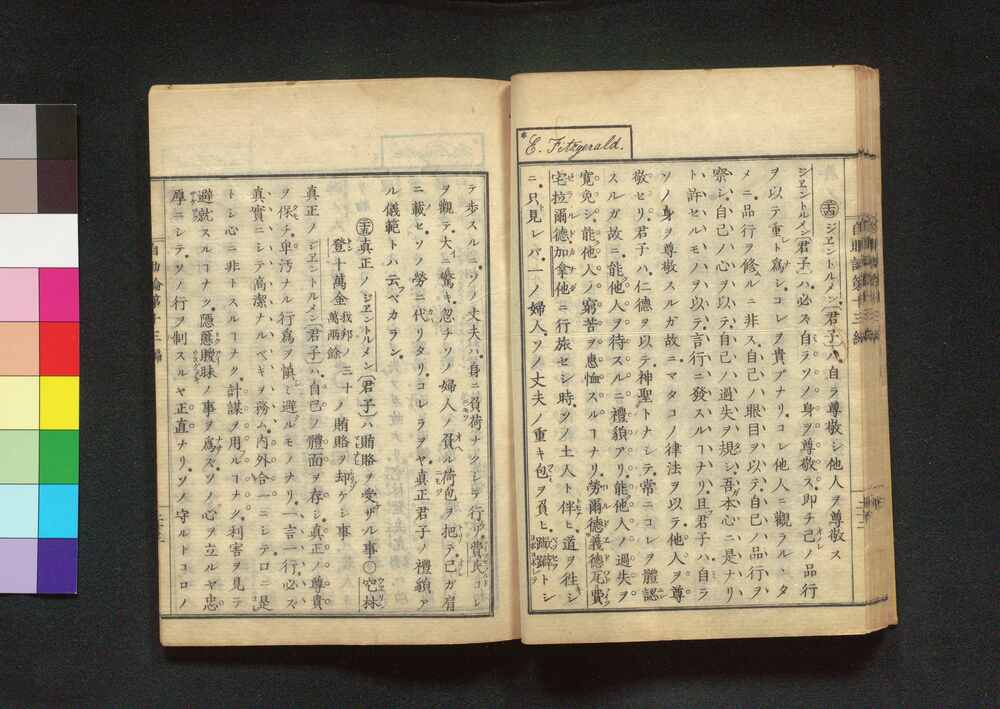 E. Fitzgerald.
ジエントルメン(君子)ハ自ラ尊敬シ他人ヲ尊敬ス
ジエントルメン(君子)ハ必ス自ラソノ身ヲ尊敬ス即チ己ノ品行
ヲ以テ重ト為シコレヲ貴ブナリコレ他人ニ觀ラルヽタ
メニ品行ヲ修ルニ非ス自己ノ眼目ヲ以テ自己ノ品行ヲ
察シ自己ノ心ヲ以テ自己ノ過失ヲ規シ吾本心ニ是ナリ
ト許セルモノハヲ以テ言行ニ發スルコナリ且君子ハ自ラ
ソノ身ヲ尊敬スルガ故ニマタコノ律法ヲ以テ他人ヲ尊
敬セリ君子ハ仁德ヲ以テ神聖トナシテ常ニコレヲ體認
スルガ故ニ能他人ヲ待スルニ禮貌アリ能他人ノ過失ヲ
寛免シ能他人ノ窮苦ヲ惠恤スルコナリ勞爾德義德瓦費
宅拉爾德加拿他ニ行旅セシ時ソノ土人ト伴ヒ道ヲ徃シ
ニ只見レバ一ノ婦人ソノ丈夫ノ重キ包ヲ負ヒ蹣跚トシ
自助論第十三編
テ歩スルニソノ丈夫ハ身ニ負荷ナクシテ行ク費氏コレ
ヲ觀テ大ニ驚キ忽ナソノ婦人ノ負ル荷包ヲ把テ己ガ肩
ニ載セソノ勞ニ代リタリコレラヲヤ真正君子ノ禮貌ア
ル儀範トハ云フベカラン
真正ノジエントルメン(君子)ハ賄賂ヲ受ザル事○宛林
登十萬金我邦ノ二十萬兩餘ノ賄賂ヲ却ケシ事
真正ノジエントルメン(君子)ハ自己ノ體面ヲ存シ真正ノ尊貴
ヲ保チ卑汚ナル行爲ヲ慎ミ避ルモノナリ一言一行必ズ
真實ニシテ高潔ナルベキヲ務ム内外合一ニシテ口ニ是
トシ心ニ非トスルコナク計謀ヲ用ルコナシ利害ヲ見テ
避就スルコナク隱慝曖昧ノ事ヲ爲ズソノ心ヲ立ルヤ忠
厚ニシテソノ行ヲ制スルヤ正直ナリソノ守ルトコロノ
自助論第十三編